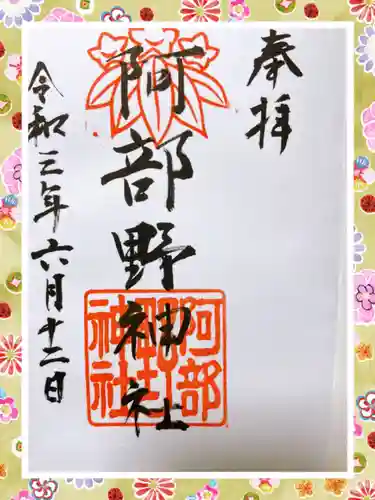 奉拝
阿部野神社
令和三年六月十二日
阿部
野
神社